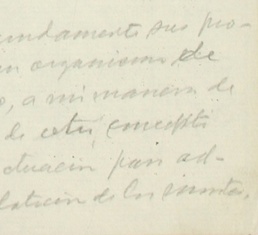 undamente sus pro-
organismo de
o, a mi manera de
de este concepto
tuación para ad-
de los